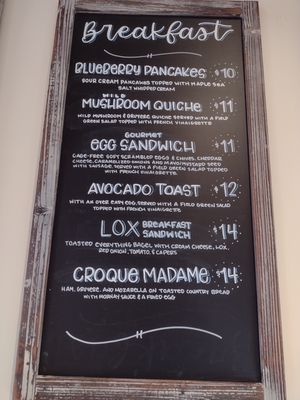 Breakfast
BLUEBERRY PANCAKES $10
SOUR CREAM PANCAKES TOPPED WITH MAPLE SEA
SALT WHIPPED CREAM
WILD
MUSHROOM QUICHE $11
WILD MUSHROOM & GRUYERE QUICHE SERVED WITH A FIELD
GREEN SALAD TOPPED WITH FRENCH VINAIGRETTE
GOURMET
EGG SANDWICH $11
CAGE-FREE SOFT SCRAMBLED EGGS & CHIVES, CHEDDAR
CHEESE, CARAMELIZED ONIONS AND MAYO/MUSTARD SEED
WITH SAUSAGE. SERVED WITH A FIELD GREEN SALAD TOPPED
WITH FRENCH VINAIGRETTE.
AVOCADO TOAST $12
WITH AN OVER EASY EGG, SERVED WITH A FIELD GREEN SALAD
TOPPED WITH FRENCH VINAIGRETTE
LOX BREAKFAST SANDWICH $14
TOASTED EVERYTHING BAGEL WITH CREAM CHEESE, LOX,
RED ONION, TOMATO, & CAPERS
CROQUE MADAME $14
HAM, GRUYERE, AND MOZARELLA ON TOASTED COUNTRY BREAD
WITH MORNAY SAUCE & A FRIED EGG